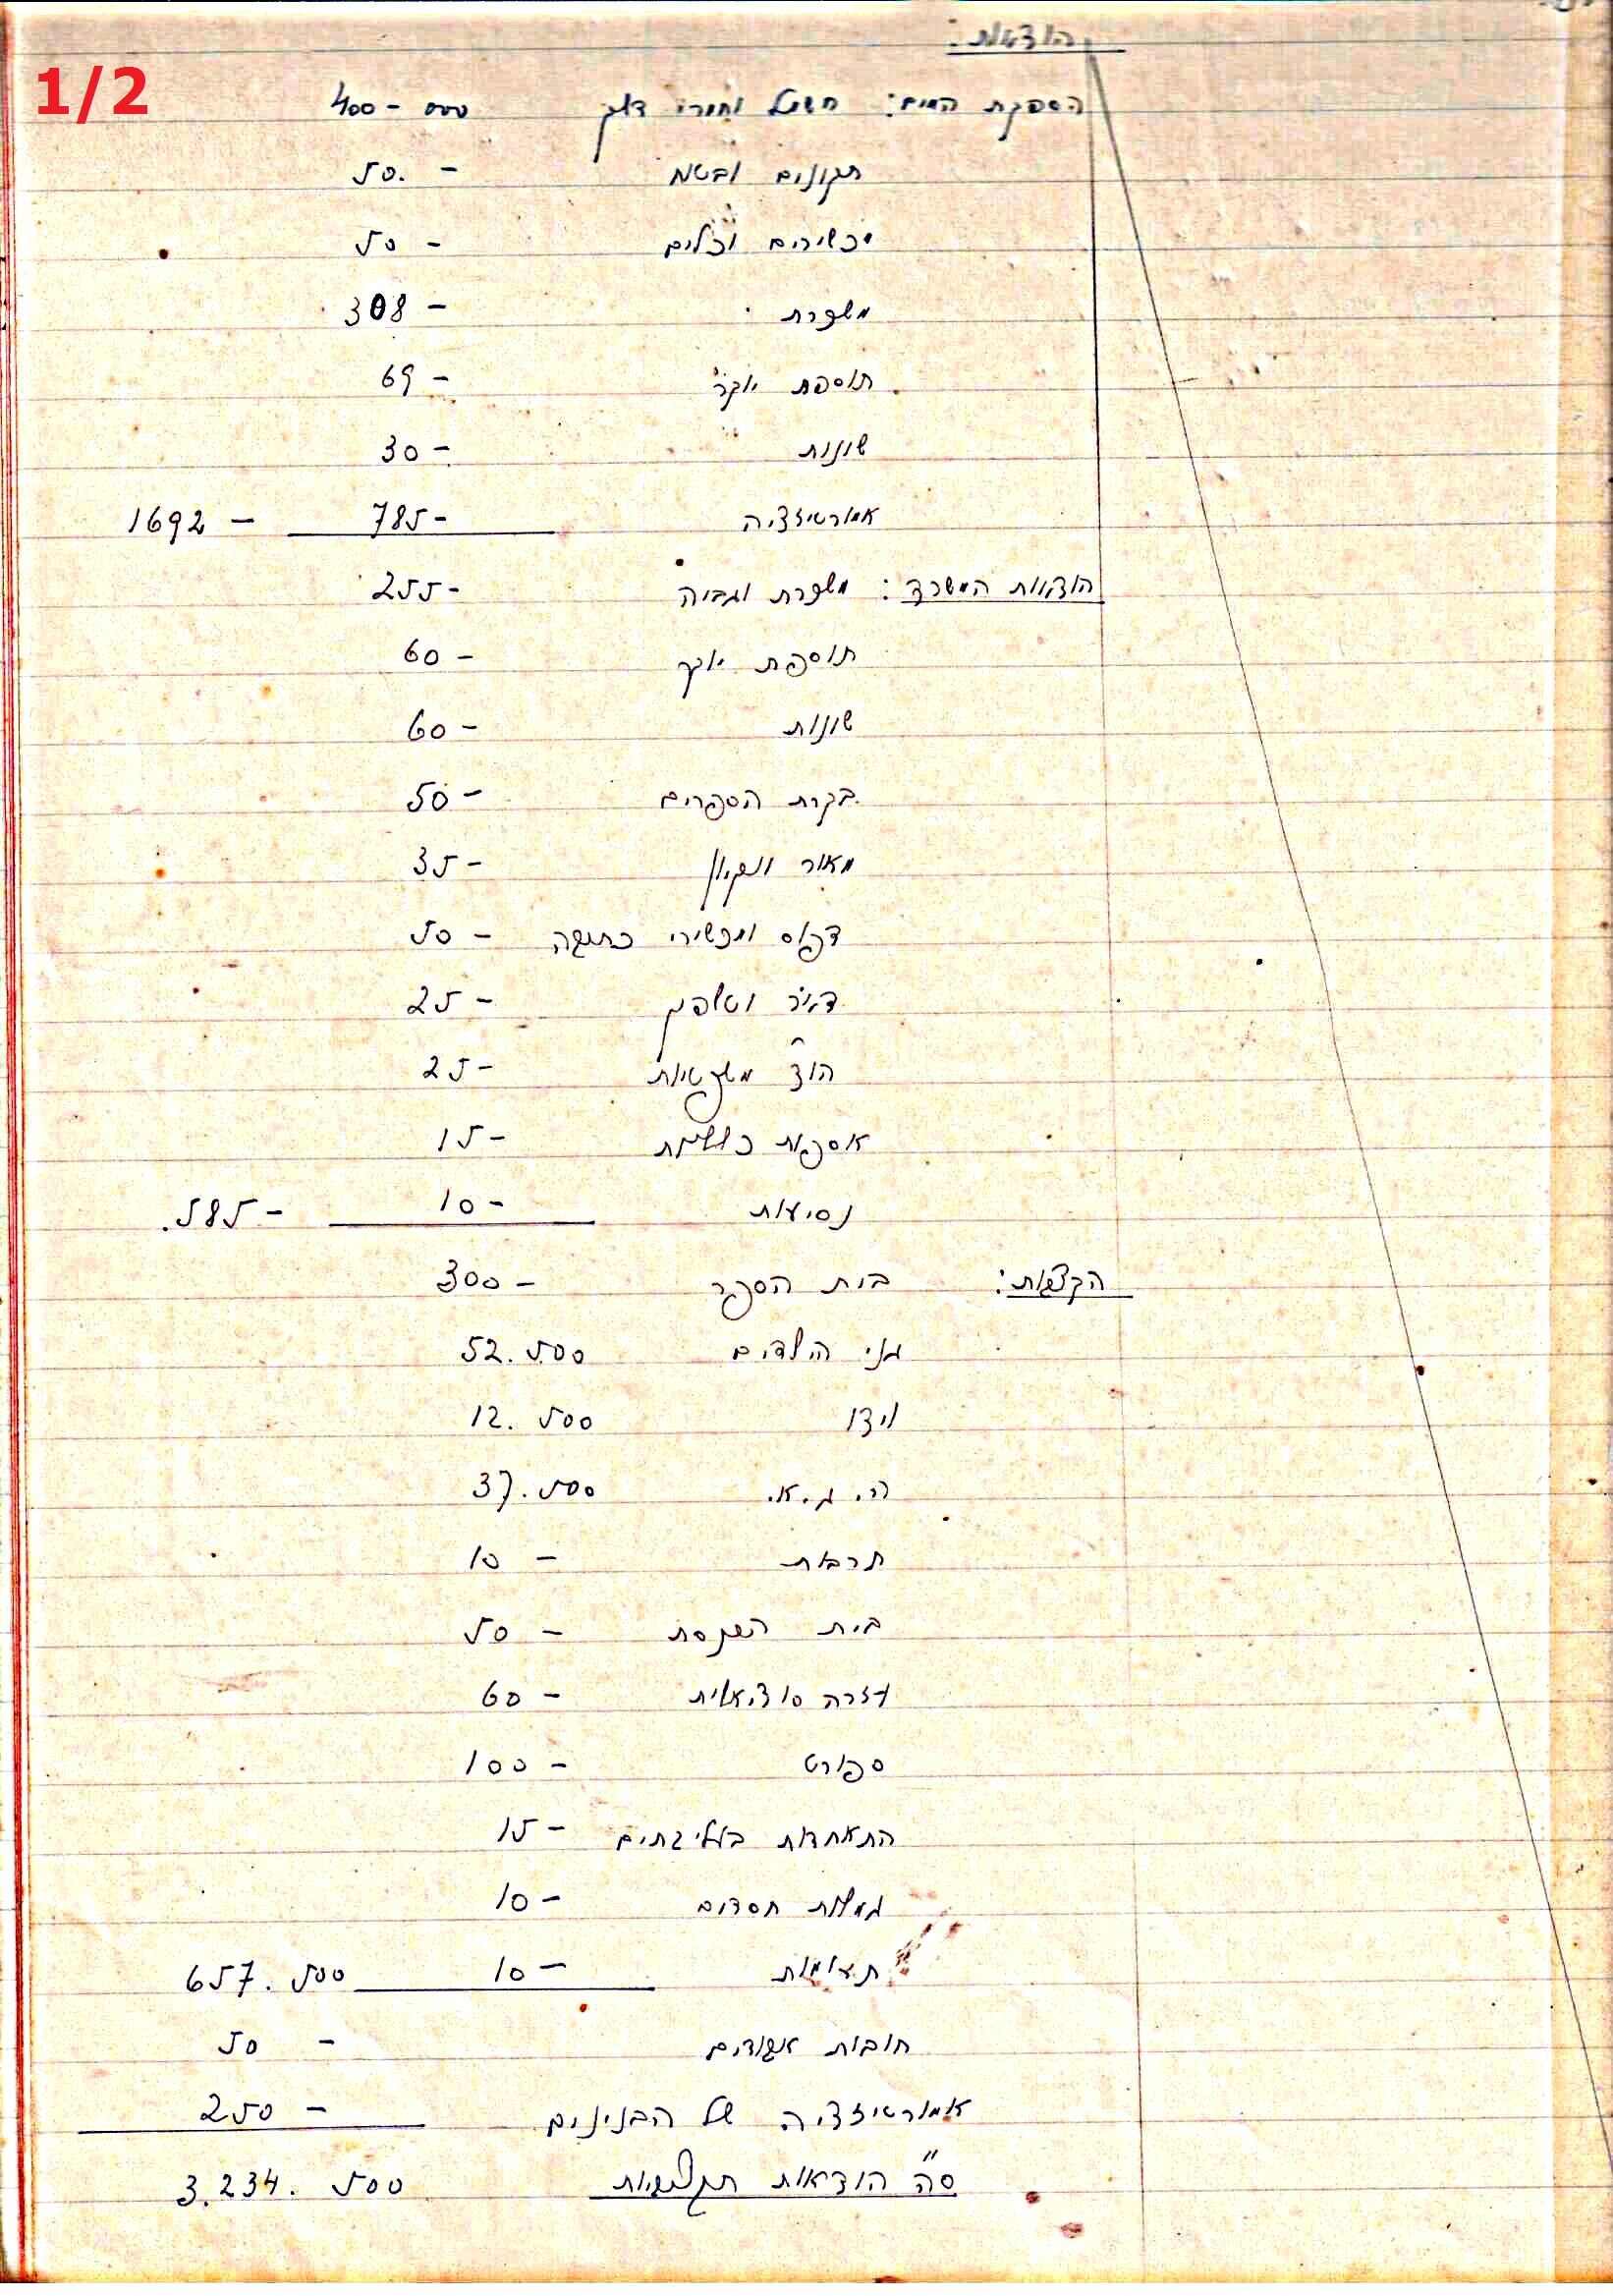 1/2
הוצאות:
הספקת המים: חשמל וחומרי דלק 400 - 000
תקונים ובטוח 50. -
מכשירים וכלים 50 -
משכורת 308 -
תוספת יוקר 69 -
שונות 30 -
אמורטיזציה 785 - 1692 -
הוצאות המשרד: משכורת וגביה 255 -
תוספת יוקר 60 -
שונות 60 -
בקרת הספרים 50 -
מאור ונקיון 35 -
דפוס ומכשירי כתיבה 50 -
דאר וטלפון 25 -
הוצ' משפטיות 25 -
אספות כלליות 15 -
נסיעות 10 - 585 -
הקצבות: בית הספר 300 -
גני הילדים 52.500
ויצו 12.500
ה. ג. א. 37.500
תרבות 10 -
בית הכנסת 50 -
עזרה סוציאלית 60 -
ספורט 100 -
התאחדות 15 -
גמילות חסדים 10 -
תרומות 10 - 657.500
חובות אבודים 50 -
אמורטיזציה של הבנינים 250 -
ס"ה הוצאות תקציביות 3.234.500